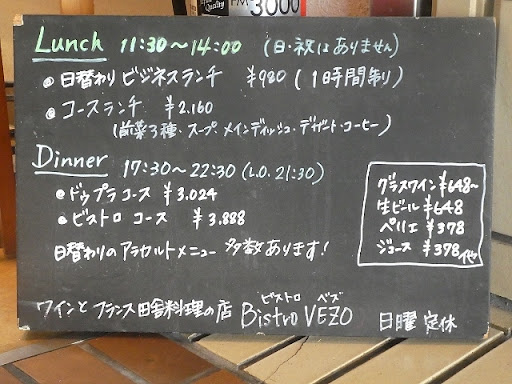 Quality
3000
Lunch 11:30～14:00 (日・祝はありません)
日替わり ビジネスランチ ¥980 (1時間制)
コースランチ ¥2.160
(前菜3種・スープ、メインディッシュ・デザート・コーヒー)
Dinner 17:30～22:30 (L.O.21:30)
ドゥプラ コース ¥3.024
ビストロ コース ¥3.888
日替わりのアラカルトメニュー 多数あります!
グラスワイン ¥648～
生ビール ¥648
ペリエ ¥378
ジュース ¥378
ビストロ ベズ
ワインと フランス田舎料理の店 Bistro VEZO 日曜 定休